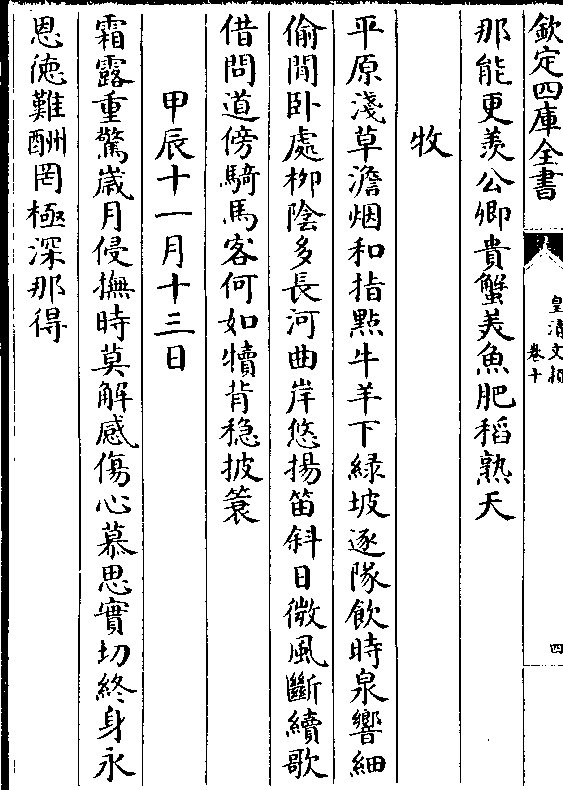 欽定四庫全書
皇清文穎
卷十
四
那能更羨公卿貴蟹美魚肥稻熟天
牧
平原淺草澹烟和指點牛羊下緑坡逐隊飲時泉響細
偷閒卧處栁陰多長河曲岸悠揚笛斜日微風斷續歌
借問道傍騎馬客何如犢背穏披蓑
甲辰十一月十三日
霜露重驚嵗月侵撫時莫解感傷心慕思實切終身永
恩徳難酬罔極深那得